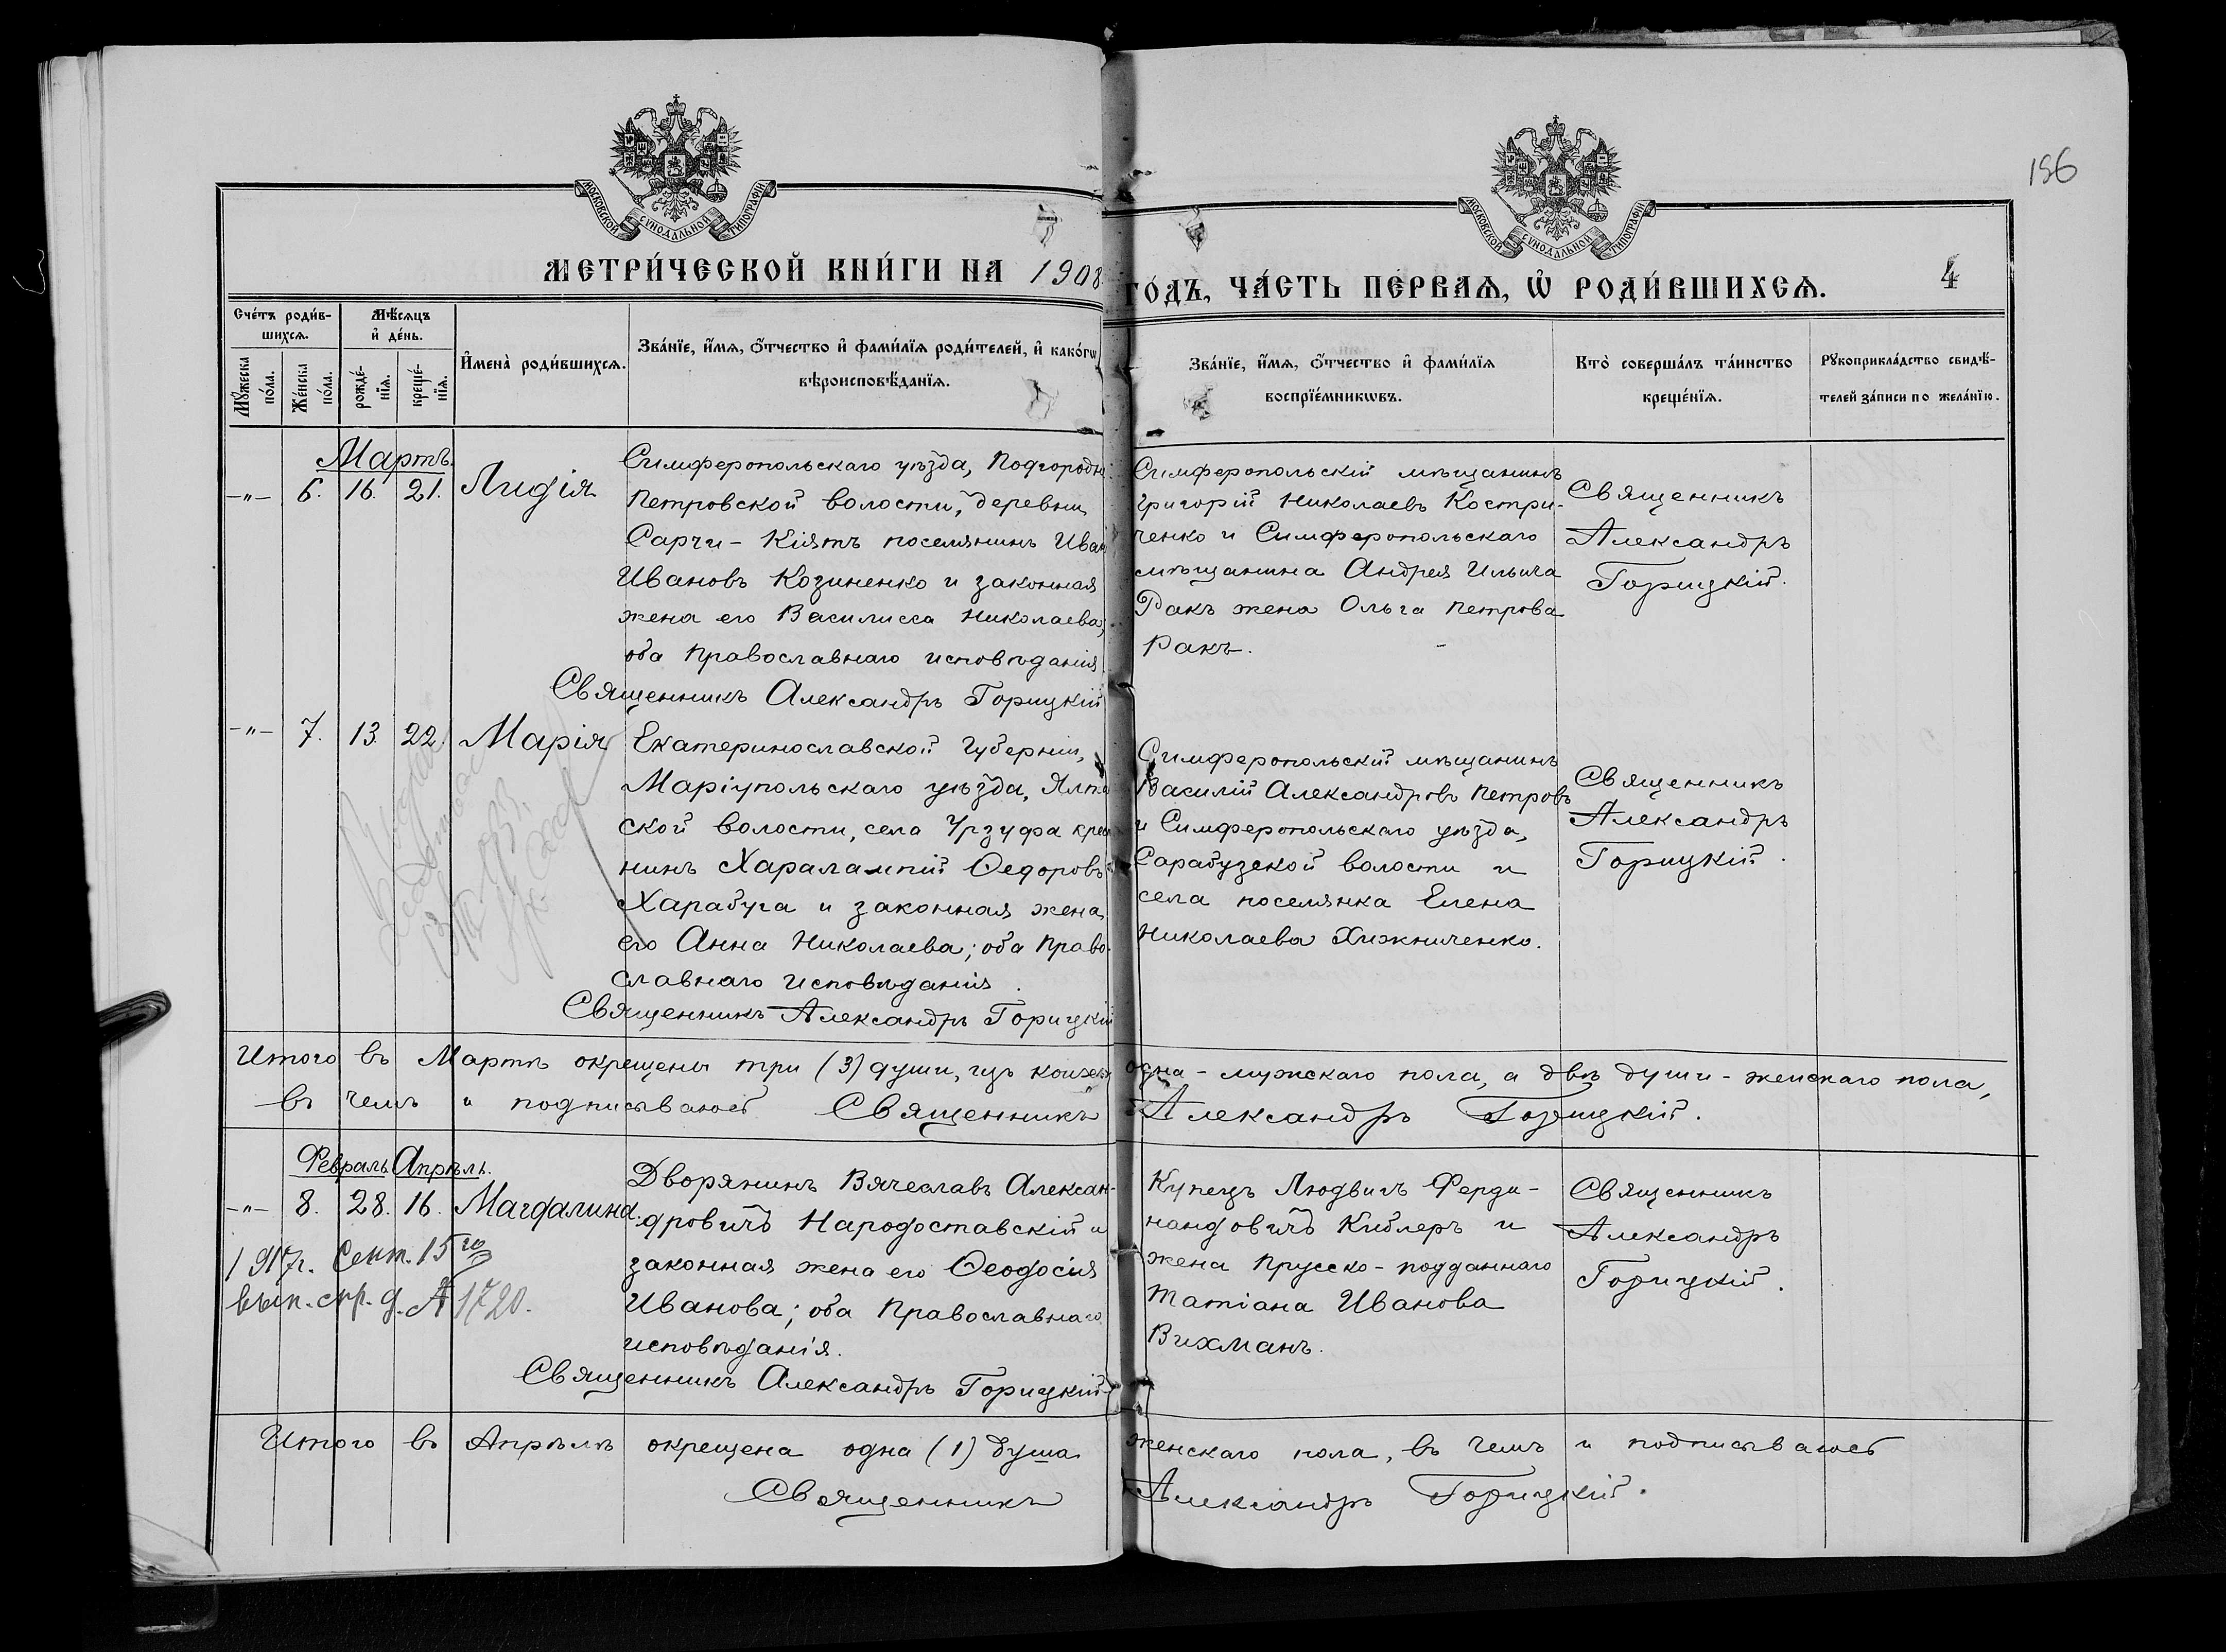 156
МОСКОВСКОЙ СѴНОДАЛЬНОЙ ТИПОГРАФІИ
МОСКОВСКОЙ СѴНОДАЛЬНОЙ ТИПОГРАФІИ
МЕТРИ́ЧЕСКОЙ КНИ́ГИ НА 1908 ГО́ДЪ, ЧА́СТЬ ПЕ́РВАѦ, Ѡ҆ РОДИ́ВШИХСѦ.
4
Сче́тъ роди́в-
шихсѧ.
Мꙋ́жеска
по́ла.
Же́нска
по́ла.
Мѣ́сѧцъ
и҆ де́нь.
рожде́-
нїѧ.
креще́-
нїѧ.
И҆мена̀ роди́вшихсѧ.
Зва́нїе, и҆́мѧ, ѻ҆́тчество и҆ фами́лїѧ роди́телей, и҆ како́гѡ
вѣроисповѣ́данїѧ.
Зва́нїе, и҆́мѧ, ѻ҆́тчество и҆ фами́лїѧ
воспрїе́мникѡвъ.
Кто̀ соверша́лъ та́инство
креще́нїѧ.
Рꙋкоприкла́дство свидѣ́-
телей за́писи по жела́нїю.
Мартъ.
-"- 6. 16. 21. Лидія
Симферопольскаго уѣзда, Подгородне-
Петровской волости, деревни
Сарчи-Кіятъ поселянинъ Иван
Ивановъ Козиненко и законная
жена его Василисса Николаева,
оба Православнаго исповѣданія
Священникъ Александръ Горицкій
Симферопольскій мѣщанинъ
Григорій Николаевъ Костри-
ченко и Симферопольскаго
мѣщанина Андрея Ильича
Ракъ жена Ольга Петрова
Ракъ.
Священникъ
Александръ
Горицкій.
-"- 7. 13. 22. Марія
Екатеринославской губерніи,
Маріупольскаго уѣзда, Ялт
ской волости, села Урзуфа крес
нинъ Харалампій Ѳедоровъ
Харабуга и законная жена
его Анна Николаева; оба Право-
славнаго исповѣданія.
Священникъ Александръ Горицкій
Симферопольскій мѣщанинъ
Василій Александровъ Петровъ
и Симферопольскаго уѣзда,
Сарабузской волости и
села поселянка Елена
Николаева Хижниченко.
Священникъ
Александръ
Горицкій.
Итого въ Мартѣ окрещены три (3) души, изъ коихъ одна - мужскаго пола, а двѣ души - женскаго пола,
въ чемъ и подписываюсь Священникъ Александръ Горицкій.
Февраль. Апрѣль.
-"- 8. 28. 16. Магдалина.
1917г. Сент. 15го
вып. спр. д. № 1720.
Дворянинъ Вячеславъ Алексан-
дровичъ Народоставскій и
законная жена его Ѳеодосія
Иванова; оба Православнаго
исповѣданія.
Священникъ Александръ Горицкій
Купецъ Людвигъ Ферди-
нандовичъ Киблеръ и
жена Прусско-подданнаго
Татіана Иванова
Вихманъ.
Священникъ
Александръ
Горицкій.
Итого въ Апрѣлѣ окрещена одна (1) душа женскаго пола, въ чемъ и подписываюсь
Священникъ Александръ Горицкій.